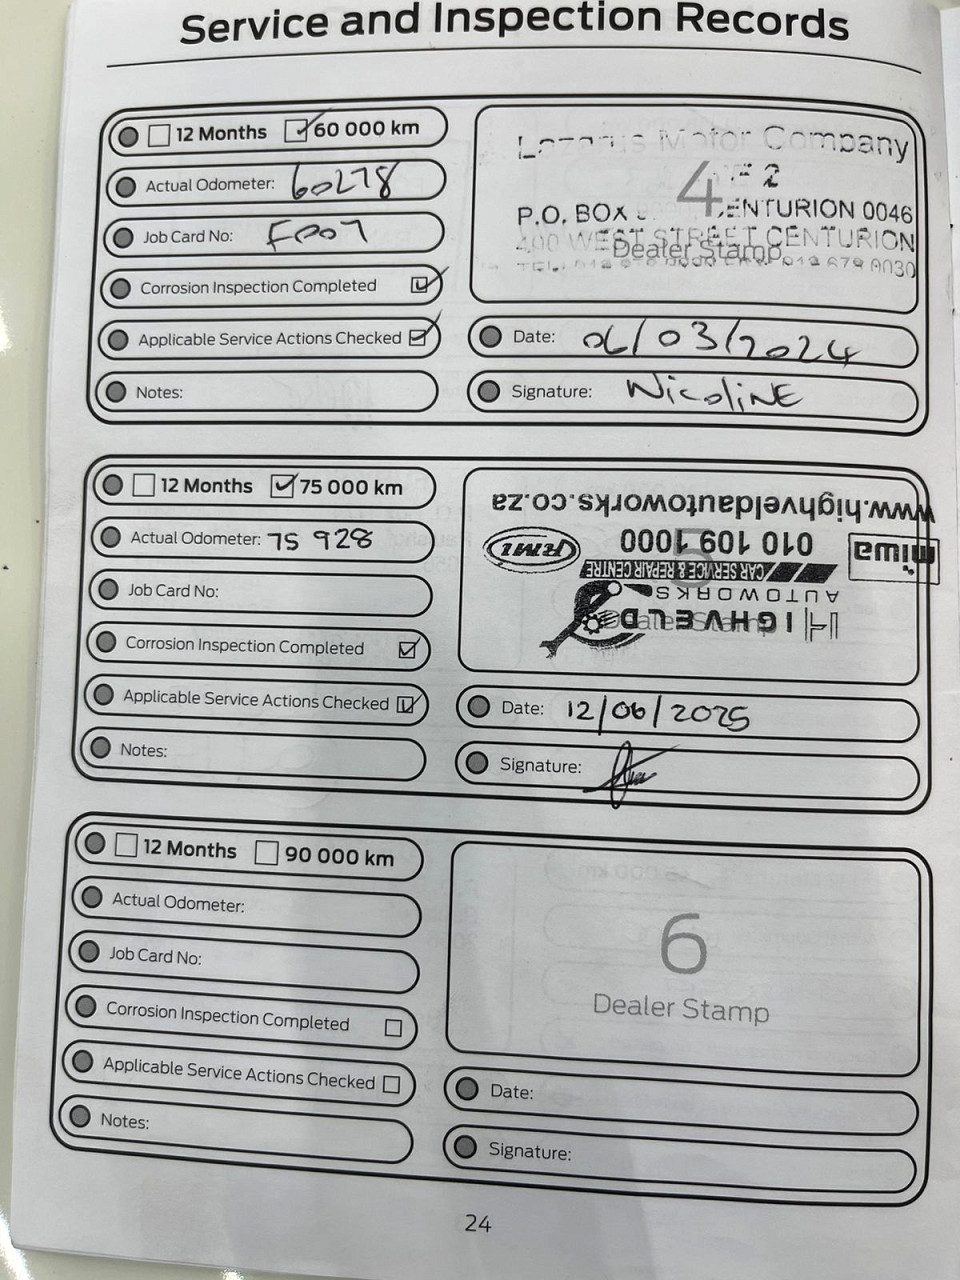 Service and Inspection Records
12 Months 60 000 km
Actual Odometer: 60278
Job Card No:
Corrosion Inspection Completed
Applicable Service Actions Checked
Notes:
Motor Company
4 2
P.O. BOX CENTURION 0046
WEST STREET CENTURION
Dealer Stamp
679 0030
Date: 06/03/2024
Signature: Nicoline
12 Months 75 000 km
Actual Odometer: 75 928
Job Card No:
Corrosion Inspection Completed
Applicable Service Actions Checked
Notes:
HIGHVELD
AUTOWORKS
CAR SERVICE & REPAIR CENTRE
RMI 010 109 1000 miwa
www.highveldautoworks.co.za
5
Dealer Stamp
Date: 12/06/2025
Signature:
12 Months 90 000 km
Actual Odometer:
Job Card No:
Corrosion Inspection Completed
Applicable Service Actions Checked
Notes:
6
Dealer Stamp
Date:
Signature:
24